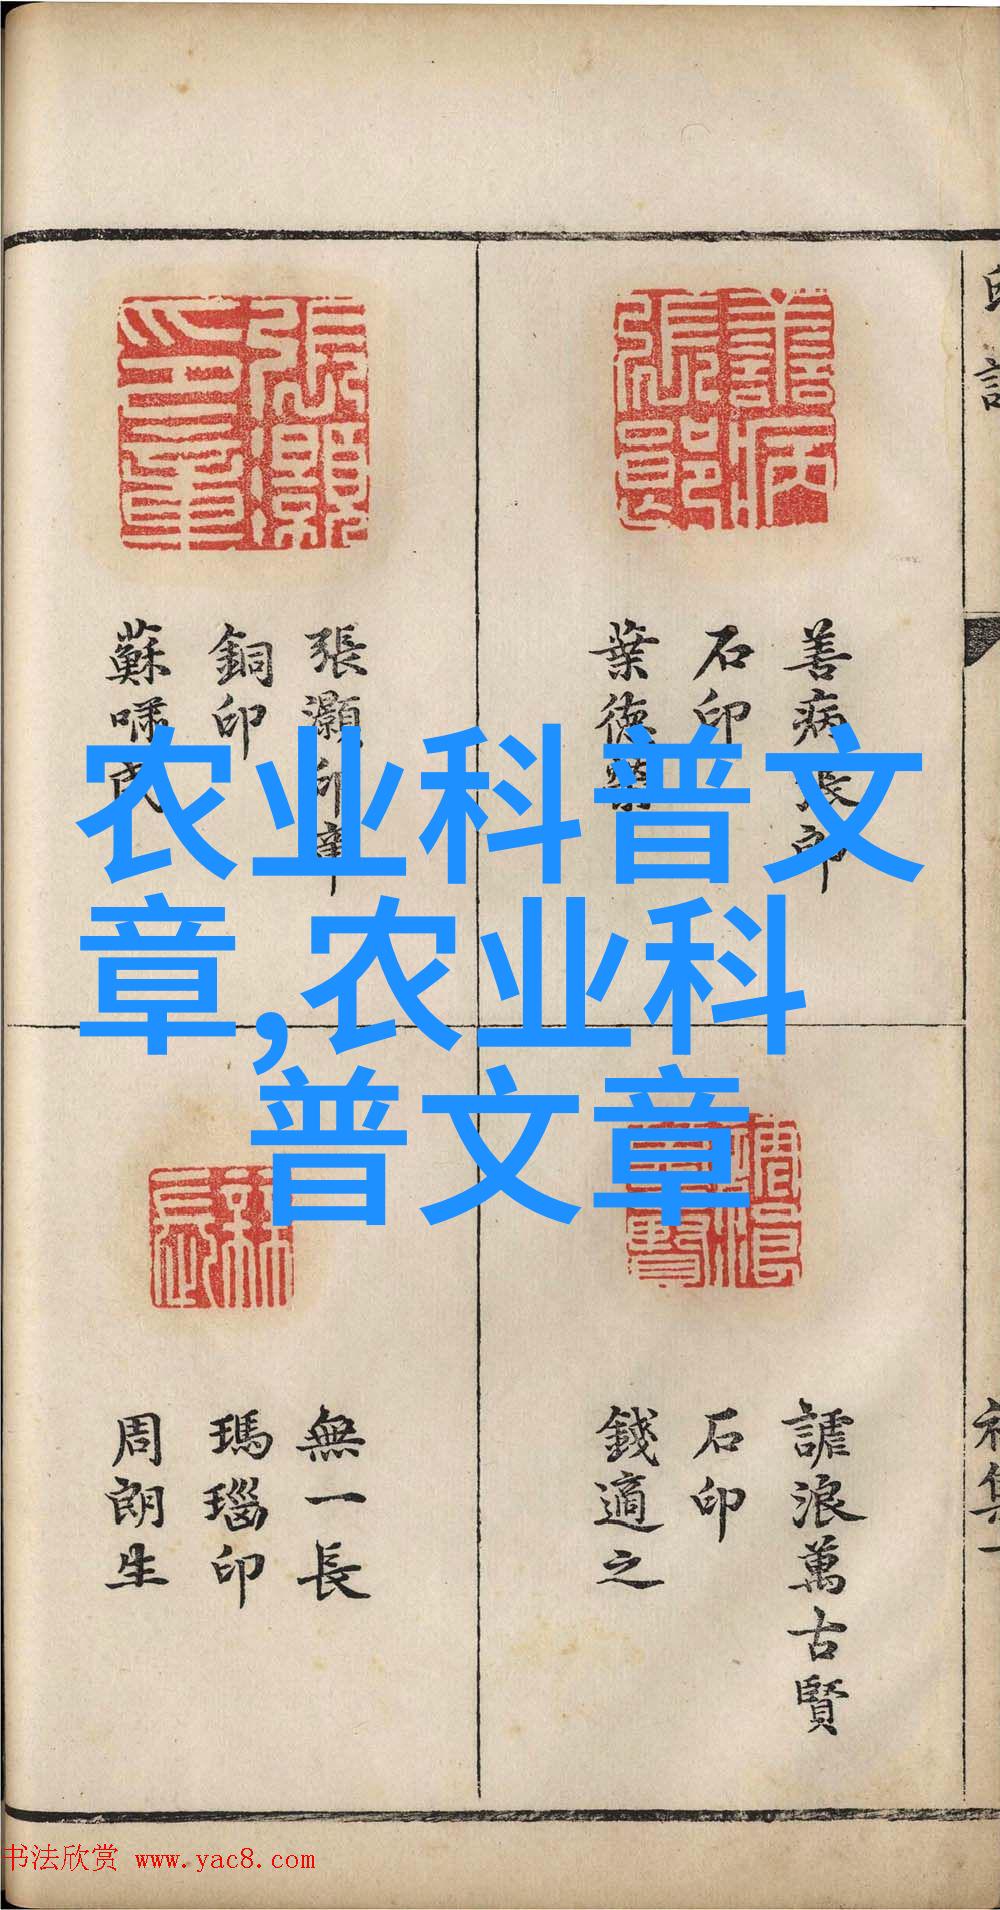 善病張郎
石印
葉德榮
張灝印章
銅印
蘇嘯民
農业科普文
章,农业科
普文章
謔浪萬古賢
石印
錢適之
無一長
瑪瑙印
周朗生
初集一
书法欣赏 www.yac8.com